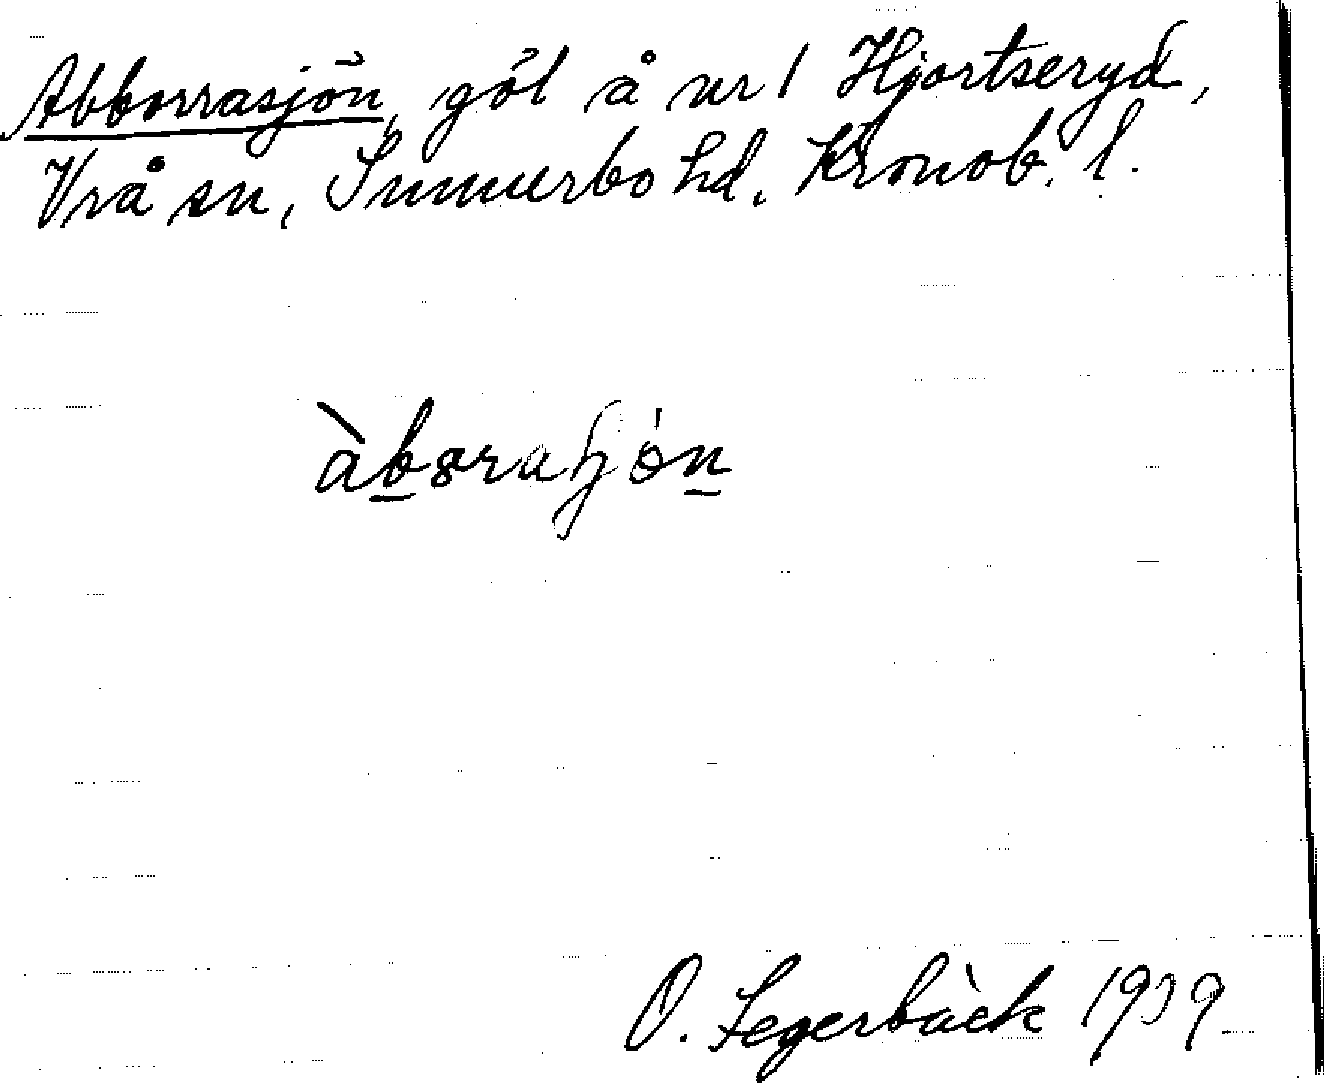 Abborrasjön, göl å nr 1 Hjortseryd,
Vrå sn, Sunnerbo hd. Kronob. l.
O. Segerbäck 1939